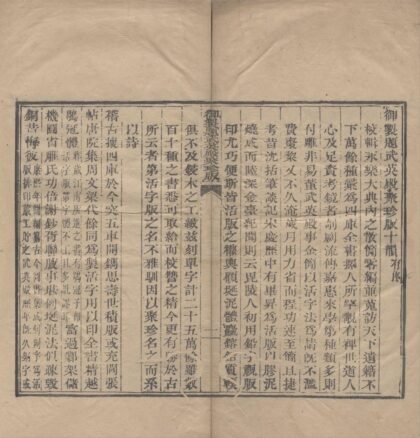 御製題武英殿聚珍版十韻有序
校輯永樂大典內之散簡零編並蒐訪天下遺籍不
下萬餘種彙為四庫全書擇人所罕覯有裨世道人
心及足資考鏡者剞劂流傳嘉惠來學第種類多則
付雕非易董武英殿事金簡以活字法為請既不濫
費棗棃又不久淹歲月用力省而程功速至簡且捷
考昔沈括筆談記宋慶歷中有畢昇為活版以膠泥
燒成而陸深金臺紀聞則云毘陵人初用鉛字視版
印尤巧便斯皆活版之權輿顧埏泥體麤鎔鉛質輭
俱不及鋟木之工緻茲刻單字計二十五萬餘雖數
百十種之書悉可取給而校讐之精今更有勝於古
所云者第活字版之名不雅馴因以聚珍名之而系
以詩
稽古搜四庫於今突五車開鐫思壽世積版或充閭張
帖唐院集周文梁代餘同為製活字用以印全書精越
鶡冠體
富過鄴架儲
機圓省雕氏功倍謝鈔胥聯腋事堪例埏泥法似疎毀
銅昔悔彼